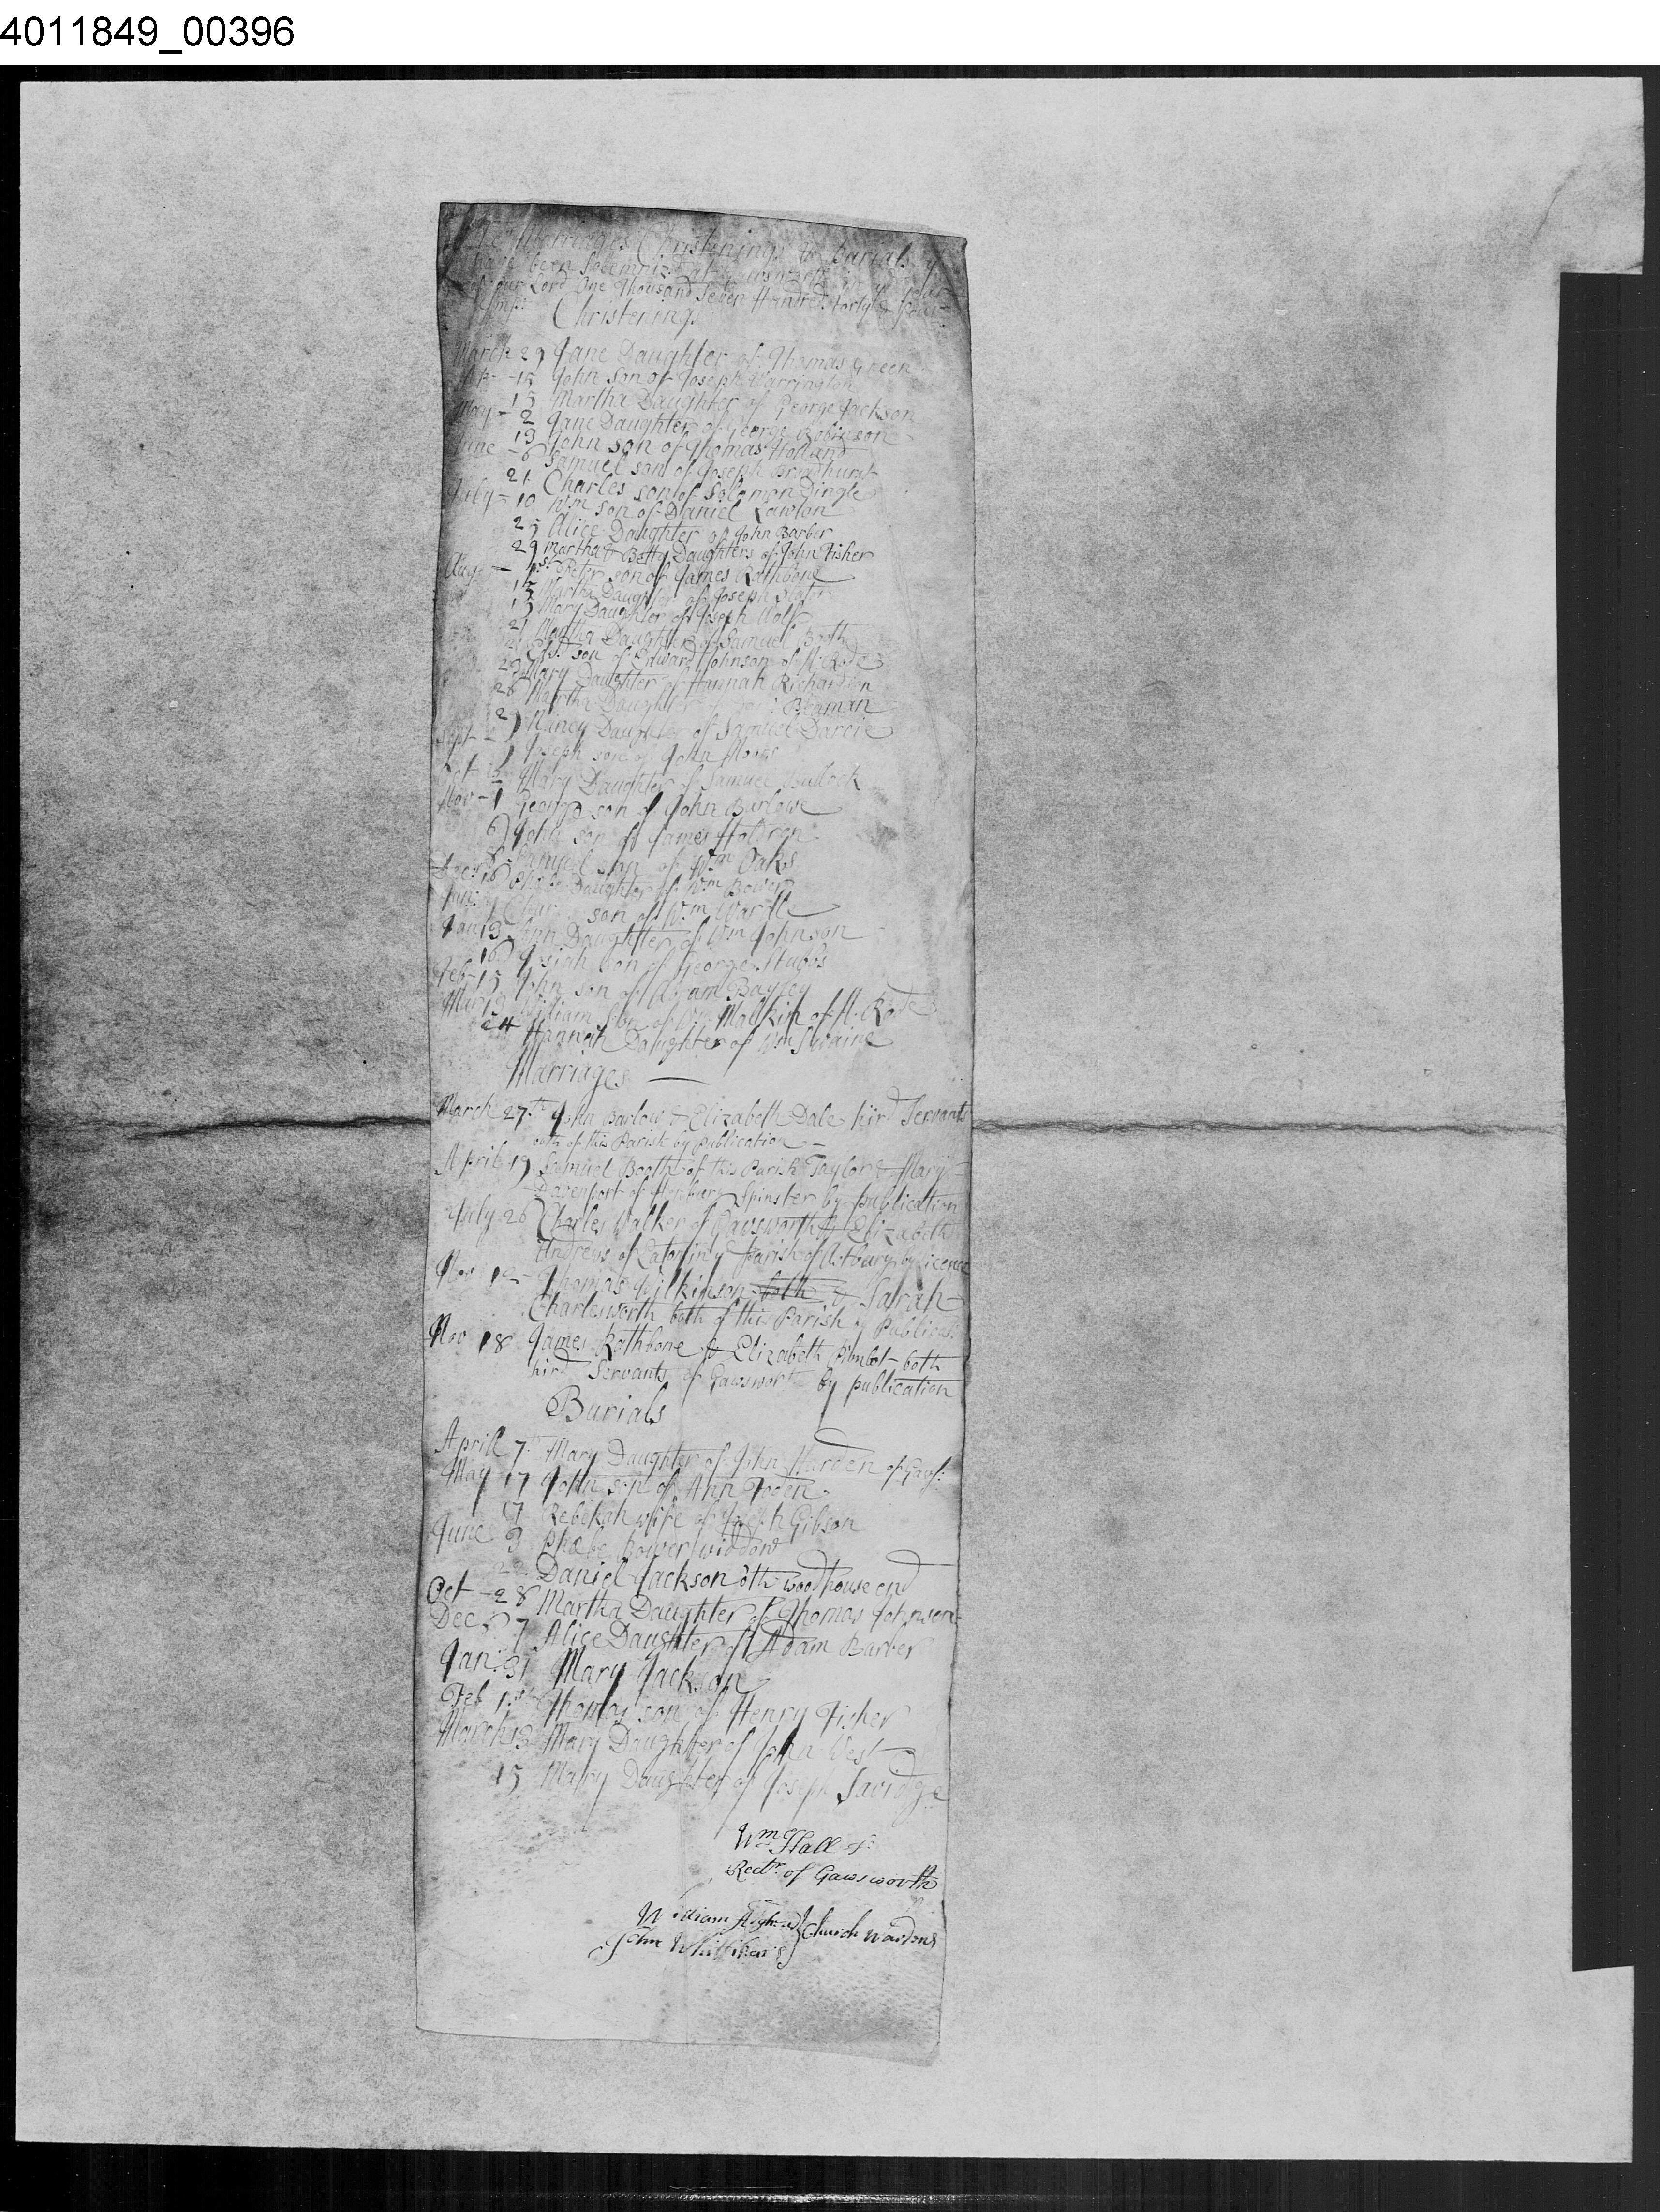 4011849_00396
Marriages Christenings & Burials
have been Solemniz'd at Gawsworth in year
of our Lord One Thousand Seven Hundred Forty & four
Christenings
March 29 Jane Daughter of Thomas Green
15 John son of Joseph Warrington
15 Martha Daughter of George Jackson
May - 2 Jane Daughter of George Robinson
19 John son of Thomas Holland
June - 6 Samuel son of Joseph Bradhurst
21 Charles son of Solomon Dingle
July - 10 Wm son of Daniel Lawton
25 Alice Daughter of John Barber
29 Martha & Betty Daughters of John Fisher
Aug: - 1st Peter son of James Rathbone
15 Martha Daughter of Joseph
15 Mary Daughter of Joseph Wolf
21 Martha Daughter of Samuel Booth
son of Edward Johnson of N. Rode
Mary Daughter of Hannah Richardson
26 Martha Daughter of Beaman
Sept - Nancy Daughter of Samuel Darcie
Joseph son of John Moors
Oct Mary Daughter of Samuel Bullock
Nov - 1 George son of John Barlowe
6 John son of James Holdron
Samuel son of Wm Oaks
Decr 16 Daughter of Wm Bower
son of Wm Wardle
Jan 13 Ann Daughter of Wm Johnson
16 Josiah son of George Stubbs
Feb - 15 John son of Abram Bayley
Mar William Son of Wm Malkin of N. Rode
24 Hannah Daughter of Wm Swaine
Marriages
March 27th John Barlow & Elizabeth Dale hir'd Servants
both of this Parish by publication
April 19 Samuel Booth of this Parish Taylor & Mary
Davenport of Spinster by publication
July 26 Charles Walker of Gawsworth & Elizabeth
Andrews of Eaton in y Parish of Astbury by licence
Nov Thomas Wilkinson both & Sarah
Charlesworth both of this Parish by Publicat:
Nov 18 James Rathbone & Elizabeth both
hir'd Servants of Gawsworth by publication
Burials
April 7th Mary Daughter of John Harden of Gaws:
May 17 John son of Ann
17 Rebekah wife of Joseph Gibson
June 3 Phaebe Bower widdow
Daniel Jackson oth woodhouse end
Oct - 28 Martha Daughter of Thomas Johnson
Dec 7 Alice Daughter of Adam Barber
Jan: 31 Mary Jackson
Feb 1st Thomas son of Henry Fisher
March 13 Mary Daughter of John West
15 Mary Daughter of Joseph Savidge
Wm Hall
Rectr of Gawsworth
William Church Wardens
John